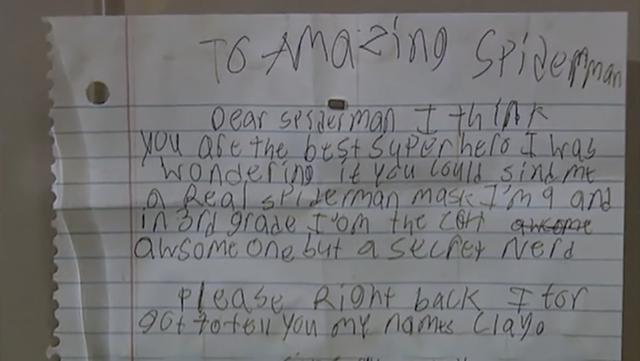 To Amazing Spiderman
Dear spiderman I think
you are the best super hero I was
wondering if you could sind me
a Real spiderman mask I'm 9 and
in 3rd grade I'om the
awsome one but a secret Nerd
please Right back I for
got to tell you my names Clayo